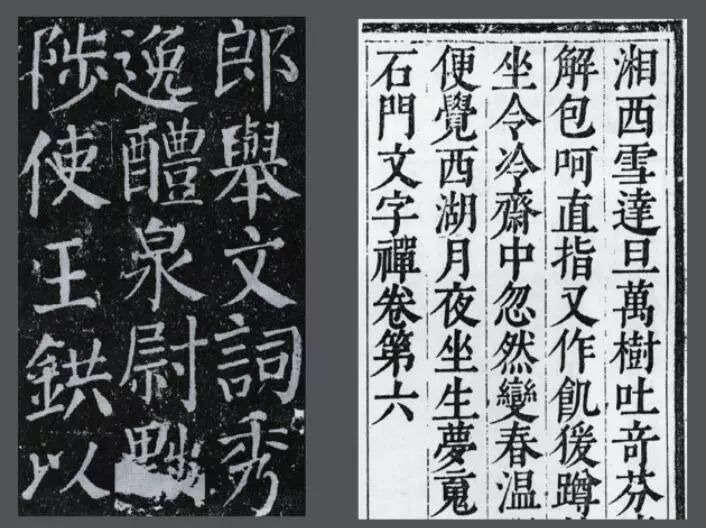 郎舉文詞秀
逸醴泉尉黜
陟使王鉷以
湘西雪達旦萬樹吐竒芬
解包呵直指又作飢猨蹲
坐令冷齋中忽然變春温
便覺西湖月夜坐生夢
石門文字禪卷第六